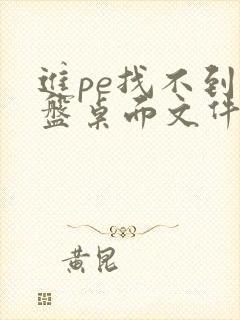 进pe找不到
盘桌面文件
黄昆